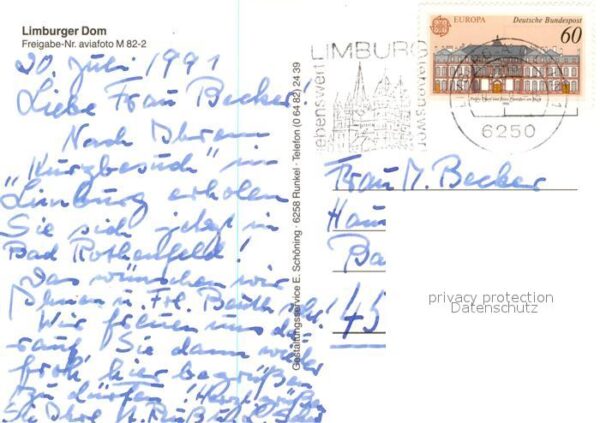 Limburger Dom
Freigabe-Nr. aviafoto M 82-2
20. Juli 1991
Liebe Frau Becker
Nach Ihrem
"Kurzbesuch" in
Limburg erholen
Sie sich jetzt in
Bad Rothenfeld!
Das wünschen wir
Ihnen u. Frl.
Wir freuen uns da-
rauf Sie dann wieder
froh hier begrüßen
zu dürfen! Herzl. grüßen
Sie Ihre
Gestaltungsservice E. Schöning · 6258 Runkel · Telefon (0 64 82) 24 39
EUROPA Deutsche Bundespost
60
LIMBURG
6250
Frau M. Becker
Ba
45
privacy protection
Datenschutz